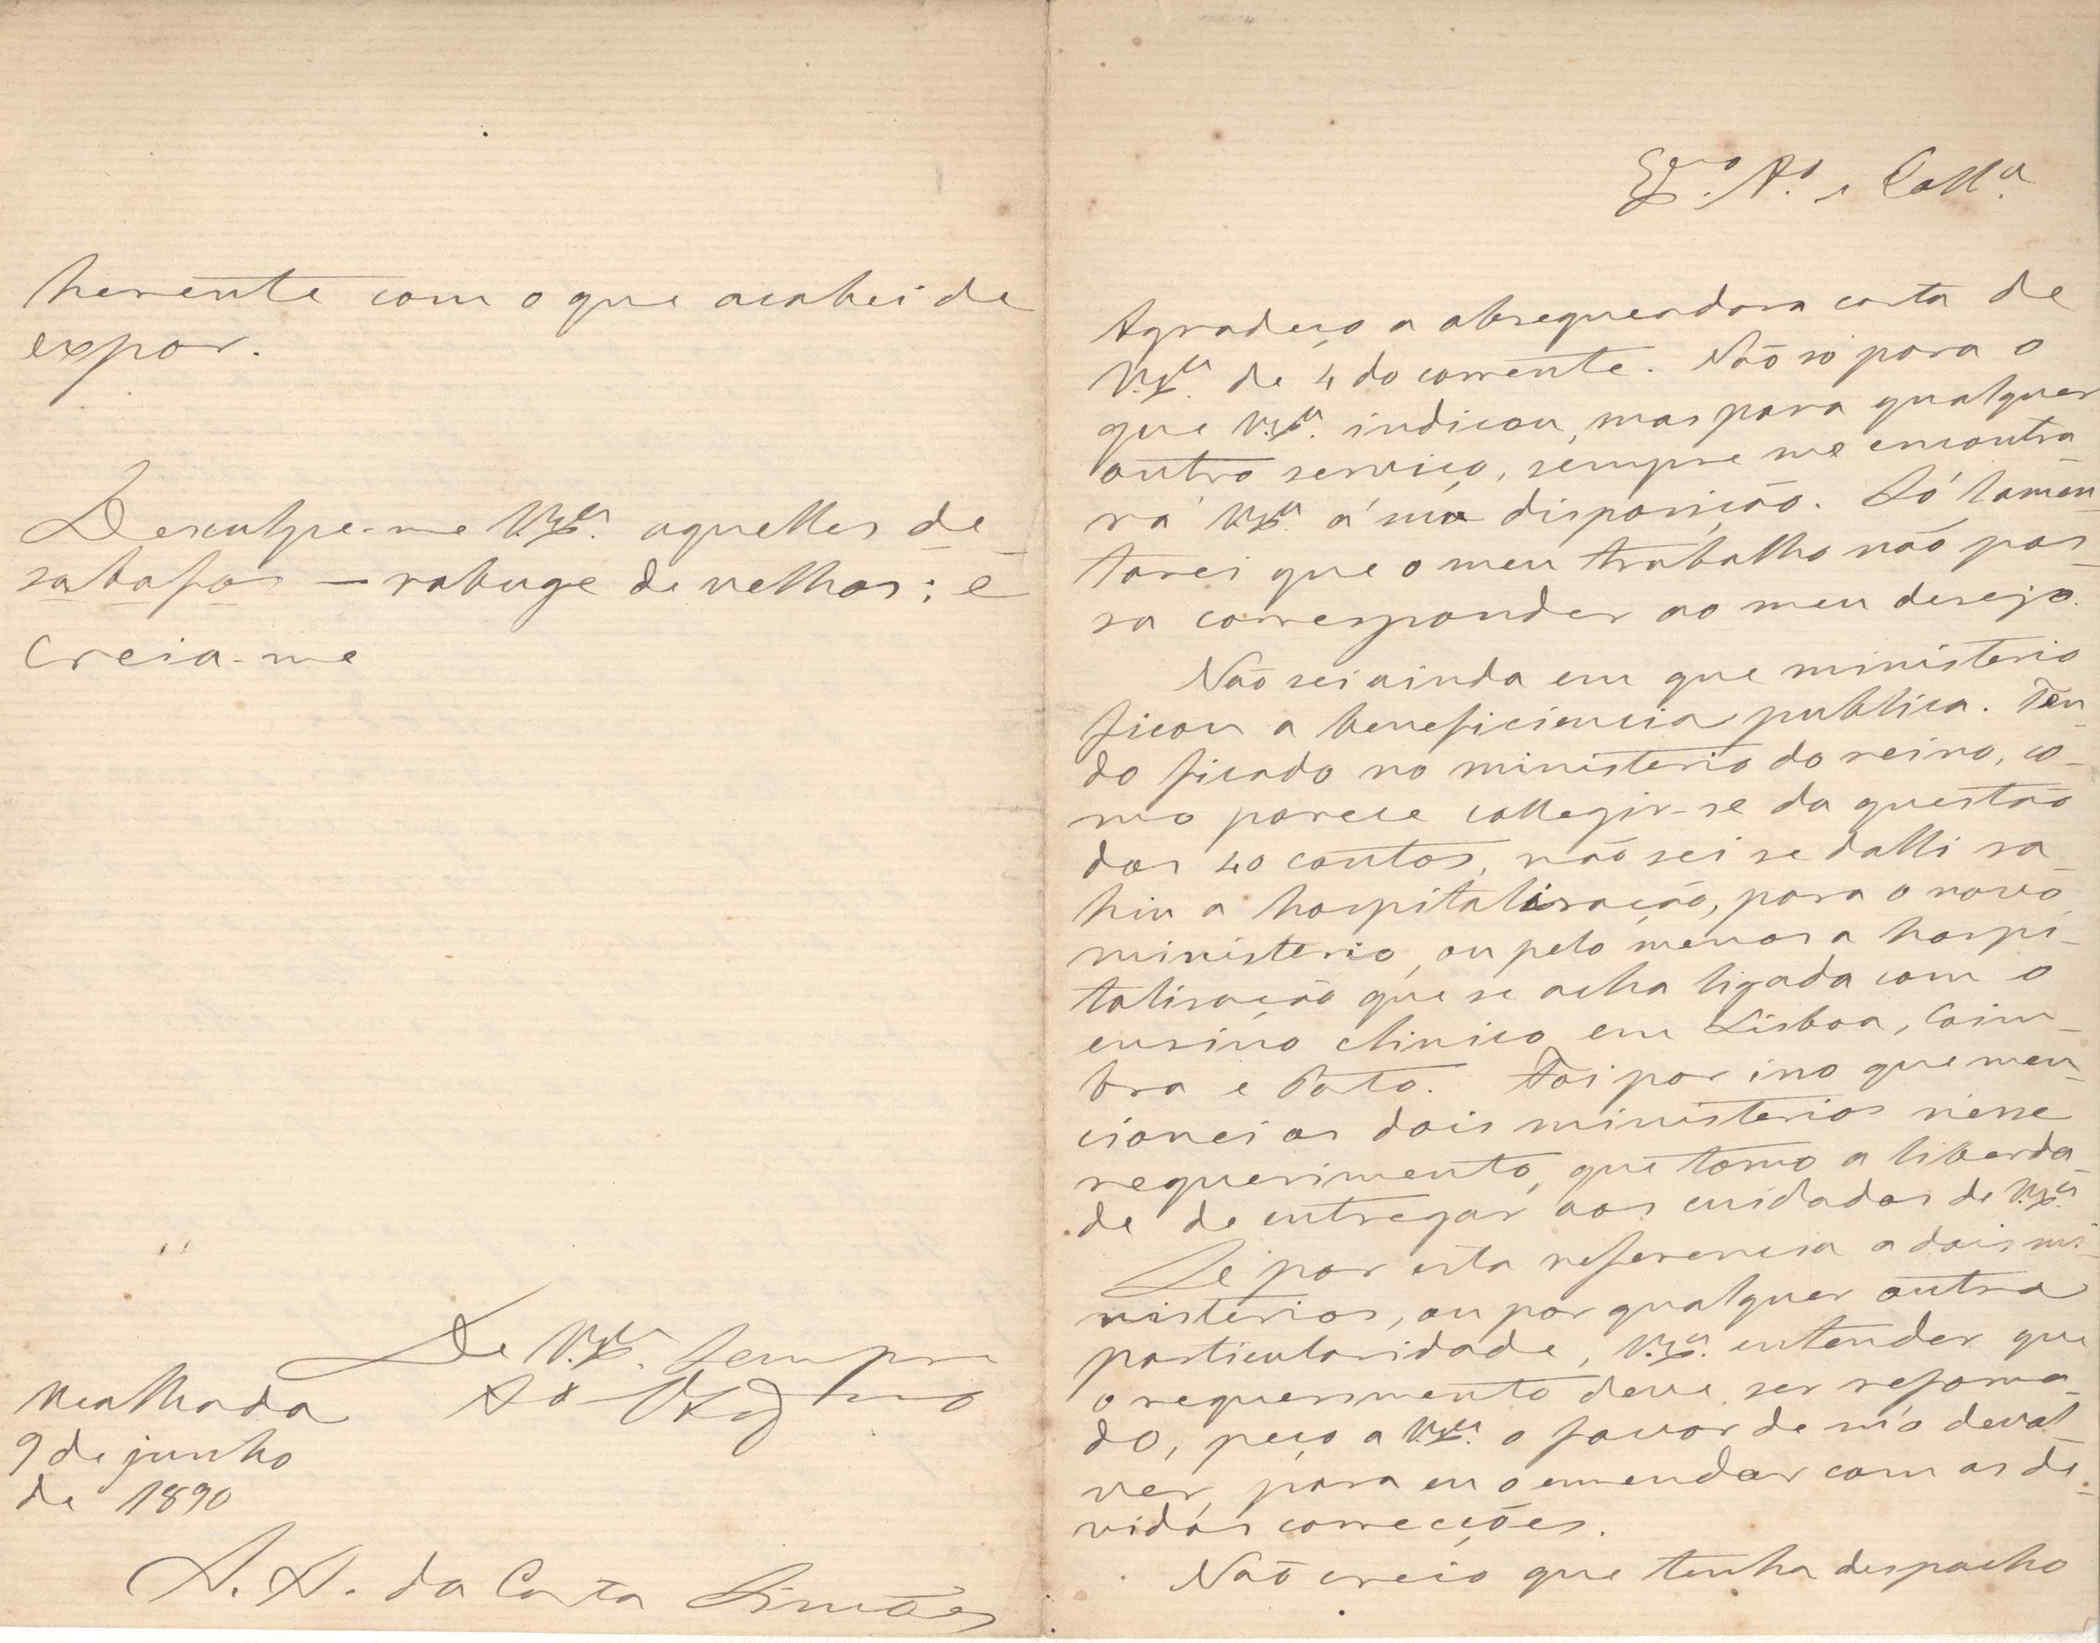 Ex.mo A.o e Coll.a
Agradeço a obsequeadora carta de
V. Ex.a de 4 do corrente. Não só para o
que V. Ex.a indicou, mas para qualquer
outro serviço, sempre me encontra-
rá V. Ex.a á m.a disposição. Só lamen-
tarei que o meu trabalho não pos-
sa corresponder ao meu desejo.
Não sei ainda em que ministerio
ficou a beneficiencia publica. Ten-
do ficado no ministerio do reino, co-
mo parece collegir-se da questão
dos 40 contos, não sei se dalli sa-
hiu a hospitalisação, para o novo
ministerio, ou pelo menos a hospi-
talisação que se acha ligada com o
ensino clinico em Lisboa, Coim-
bra e Porto. Foi por isso que men-
cionei os dois ministerios n'esse
requerimento, que tomo a liberda-
de de entregar aos cuidados de V. Ex.a
Se por esta referencia a dois mi-
nisterios, ou por qualquer outra
particularidade, V. Ex.a entender que
o requerimento deve ser reforma-
do, peço a V. Ex.a o favor de m'o devol-
ver, para eu o emendar com as de-
vidas correcções.
Não creio que tenha despacho
herente com o que acabei de
expor.
Desculpe-me V. Ex.a aquelles de-
sabafos — rabuge de velhos; e
creia-me
De V. Ex.a sempre
Mealhada
9 de junho
de 1890
A. A. da Costa Simões